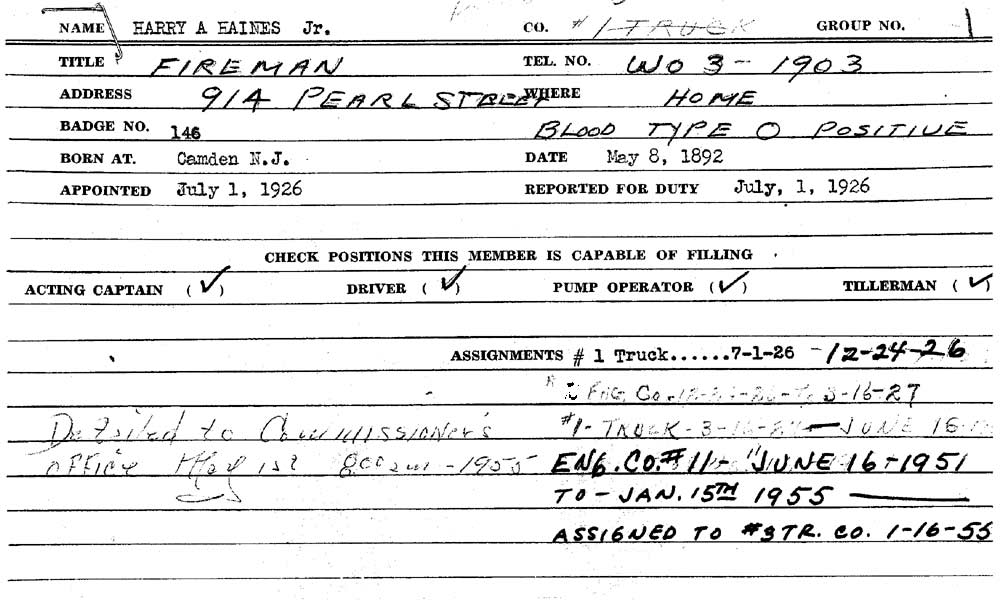 NAME HARRY A HAINES Jr. CO. # 1 TRUCK GROUP NO. 1
TITLE FIREMAN TEL. NO. WO 3 - 1903
ADDRESS 914 PEARL STREET WHERE HOME
BADGE NO. 146 BLOOD TYPE O POSITIVE
BORN AT. Camden N.J. DATE May 8, 1892
APPOINTED July 1, 1926 REPORTED FOR DUTY July, 1, 1926
CHECK POSITIONS THIS MEMBER IS CAPABLE OF FILLING
ACTING CAPTAIN (✓) DRIVER (✓) PUMP OPERATOR (✓) TILLERMAN (✓)
ASSIGNMENTS # 1 Truck......7-1-26 - 12-24-26
Eng. Co. 3-16-27
Detailed to Commissioner's #1- TRUCK - 3-16- - JUNE
OFFICE May 1st - 1955 ENG. CO. #11 - JUNE 16 - 1951
TO - JAN. 15TH 1955
ASSIGNED TO #3 TR. CO. 1-16-55